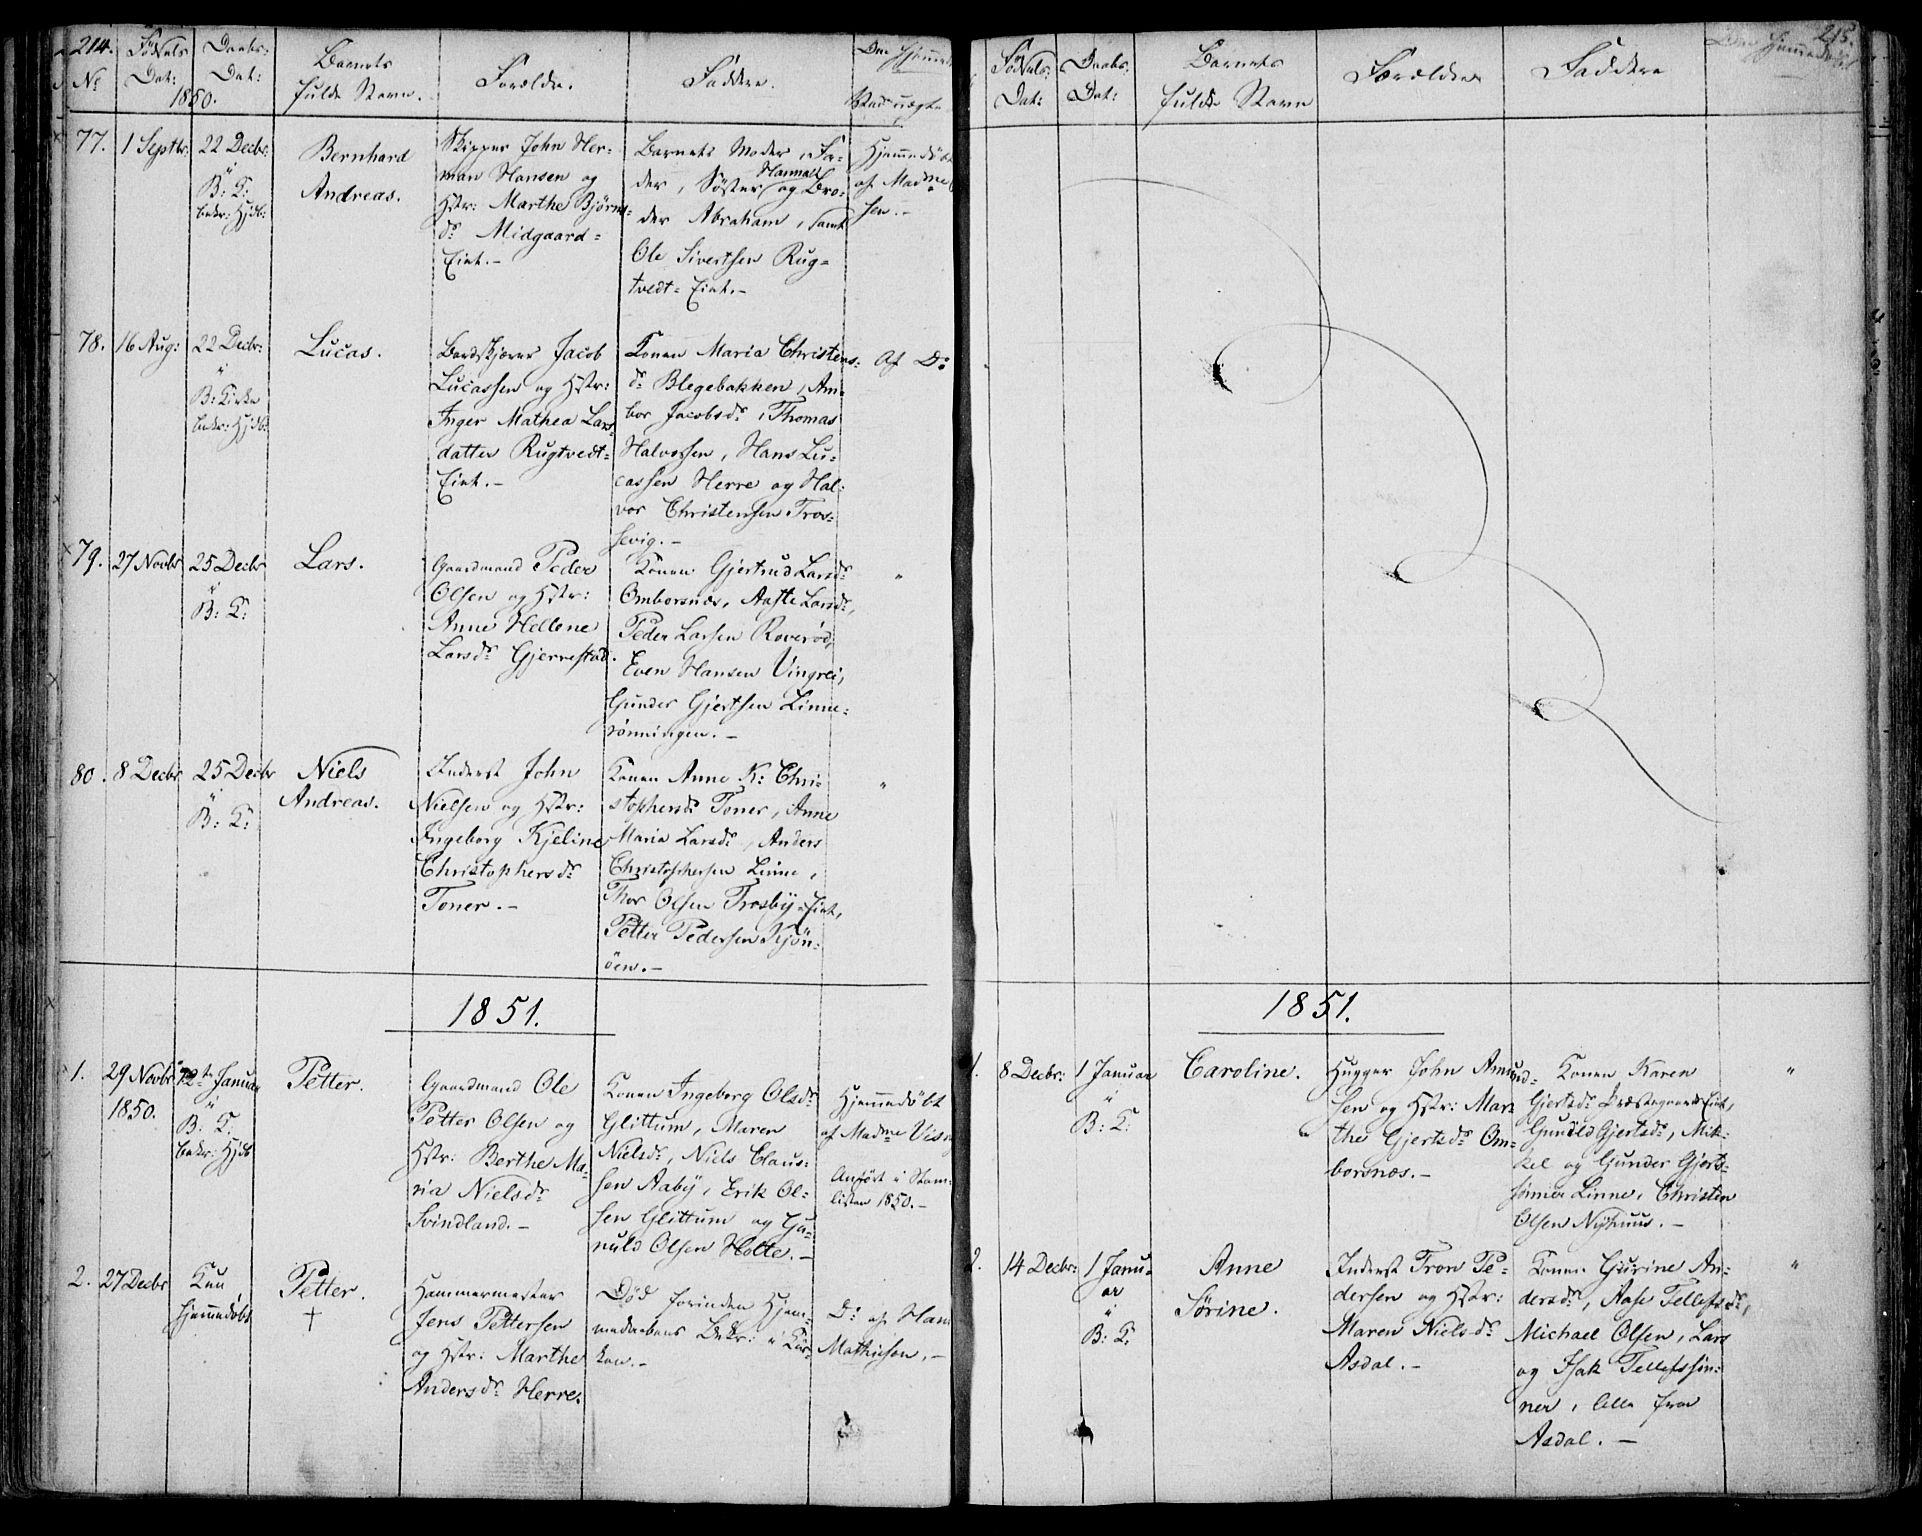 214.
No
Födsels
Dat:
Daabs-
Dat:
1850.
Barnets
fulde Navn.
Forældre.
Faddere.
Om Hjemme
77.
1 Septbr:
22 Decbr:
i
B: K:
bekr: Hjdb:
Bernhard
Andreas.
Skipper John Her-
man Hansen og
Hstr: Marthe Björns-
dr Midgaard-
Eiet.-
Barnets Moder, Fa-
der, Söster Hanna og Bro-
der Abraham, samt
Ole Sivertsen Rug-
tvedt-Eiet.-
Hjemmedöbt
af Madme
sen.-
78.
16 Aug:
22 Decbr:
i
B: Kirke
bekr: Hjdb:
Lucas.
Bordskjærer Jacob
Lucassen og Hstr:
Inger Mathea Lars-
datter Rugtvedt-
Eiet.-
Konen Maria Christens-
dr Blegebakken, Am-
bor Jacobsdr, Thomas
Halvorsen, Hans Lu-
cassen Herre og Hal-
vor Christensen Tros-
sevig.-
Af Do
79.
27 Novbr
25 Decbr
i
B: K:
Lars.
Gaardmand Peder
Olsen og Hstr:
Anne Hellene
Larsdr Gjerrestad.
Konen Gjertrud Larsdr
Omborsnæs, Aaste Larsdr,
Peder Larsen Roveröd,
Even Hansen Vingrei,
Gunder Gjertsen Linne-
rönningen.-
"
80.
8 Decbr
25 Decbr
i
B: K:
Niels
Andreas.
Inderst John
Nielsen og Hstr:
Ingeborg Kjeline
Christophersdr
Toner.-
Konen Anne K: Chri-
stophersdr Toner, Anne
Maria Larsdr, Anders
Christophersen Linne,
Thor Olsen Trosby-Eiet,
Petter Pedersen Kjön-
öen.-
"
1851.
1.
29 Novbr
1850.
12te Januar
i
B: K.
bekr: Hjdb
Petter.
Gaardmand Ole
Petter Olsen og
Hstr: Berthe Ma-
ria Nielsdr
Svindland.-
Konen Ingeborg Olsdr
Glittum, Maren
Nielsdr, Niels Claus-
sen Aaby, Erik Ol-
sen Glittum og Gu-
nuld Olsen Holte.-
Hjemmedöbt
af Madme
Anfört i Stam-
listen 1850.-
2.
27 Decbr
Kun
hjemmedöbt
Petter.
†
Hammermester
Jens Pettersen
og Hstr: Marthe
Andersdr Herre.
Död forinden Hjem-
medaabens Bekr: i Kir-
ken.-
Do af Hans
Mathiesen.-
215.
Födsels-
Dat:
Daabs-
Dat:
Barnets
fulde Navn
Forældre
Faddere
Om Hjemmedöbt
1851.
1.
8 Decbr:
1 Januar
i
B: K:
Caroline.
Hugger John Amund-
sen og Hstr: Mar-
the Gjertsdr Om-
borsnæs.-
Konen Karen
Gjertsdr Præstegaards Eiet,
Gunild Gjertsdr, Mik-
kel og Gunder Gjerts-
sönner Linne, Christen
Olsen Nyhuus.-
"
2.
14 Decbr:
1 Janu-
ar
i
B: K.
Anne
Sörine.
Inderst Tron Pe-
dersen og Hstr:
Maren Nielsdr
Asdal.-
Konen Gurine An-
dersdr, Aase Tellefsdr,
Michael Olsen, Lars
og Isak Tellefssön-
ner, alle fra
Asdal.-
"